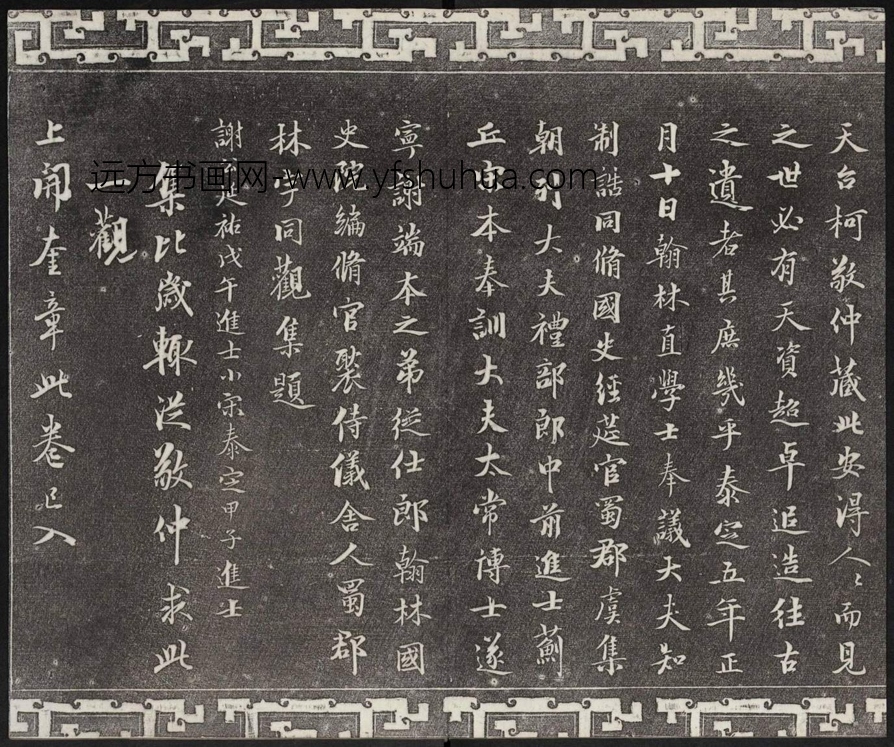 天台柯敬仲藏此安得人〻而見
之世必有天資超卓追造往古
之遺者其庶幾乎泰定五年正
月十日翰林直學士奉議大夫知
制誥同脩國史經筵官蜀郡虞集
朝列大夫禮部郎中前進士薊
丘宋本奉訓大夫太常博士遂
寧謝端本之弟從仕郎翰林國
史院編脩官褧侍儀舍人蜀郡
林宇同觀集題
謝延祐戊午進士小宋泰定甲子進士
集比歲輙從敬仲求此
觀
上開奎章此卷已入
远方书画网-www.yfshuhua.com